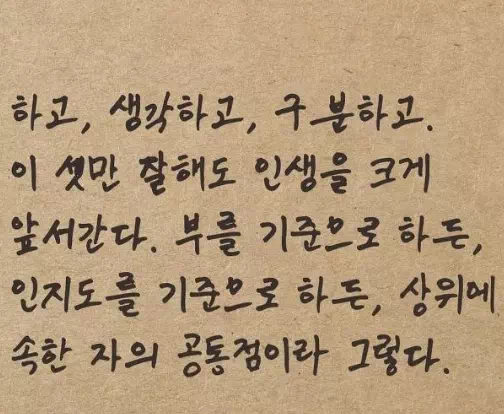 하고, 생각하고, 구분하고.
이 셋만 잘해도 인생을 크게
앞서간다. 부를 기준으로 하든,
인지도를 기준으로 하든, 상위에
속한 자의 공통점이라 그렇다.